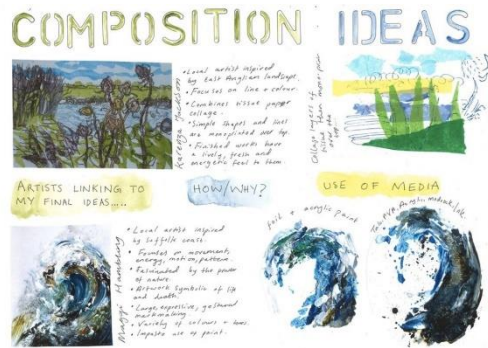 COMPOSITION IDEAS
Karenza Jackson
• Local artist inspired
by East Anglian landscape.
• Focuses on line + colour.
• Combines tissue paper
collage.
• Simple shapes and lines
are monoprinted over top.
• Finished works have
a lively, fresh and
energetic feel to them.
Collage layers of
tissue then mono-print
over the
top...
ARTISTS LINKING TO
MY FINAL IDEAS.....
HOW/WHY?
USE OF MEDIA
Maggi Hambling
• Local artist inspired
by Suffolk coast.
• Focuses on movement,
energy, motion, pattern
• Fascinated by the power
of nature.
• Artwork symbolic of life
and death.
• Large, expressive, gestural
markmaking.
• Variety of colours + tones.
• Impasto use of paint.
foil + acrylic paint
PVA, Acrylic,